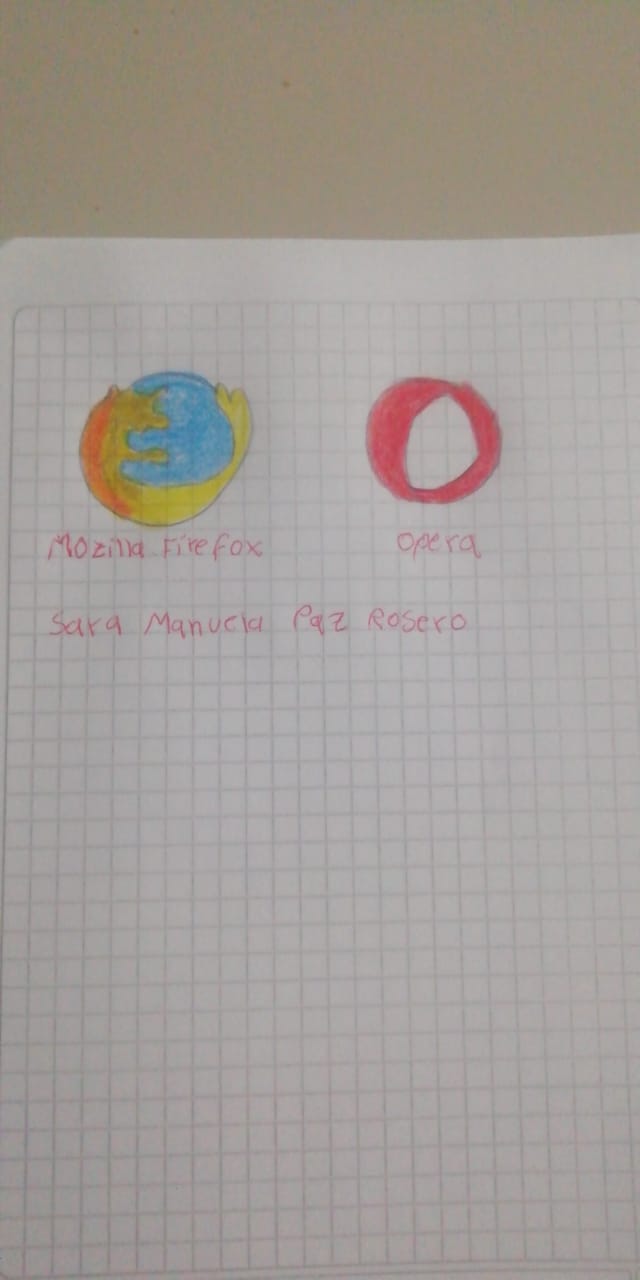 Mozilla Firefox
Opera
Sara Manuela Paz Rosero